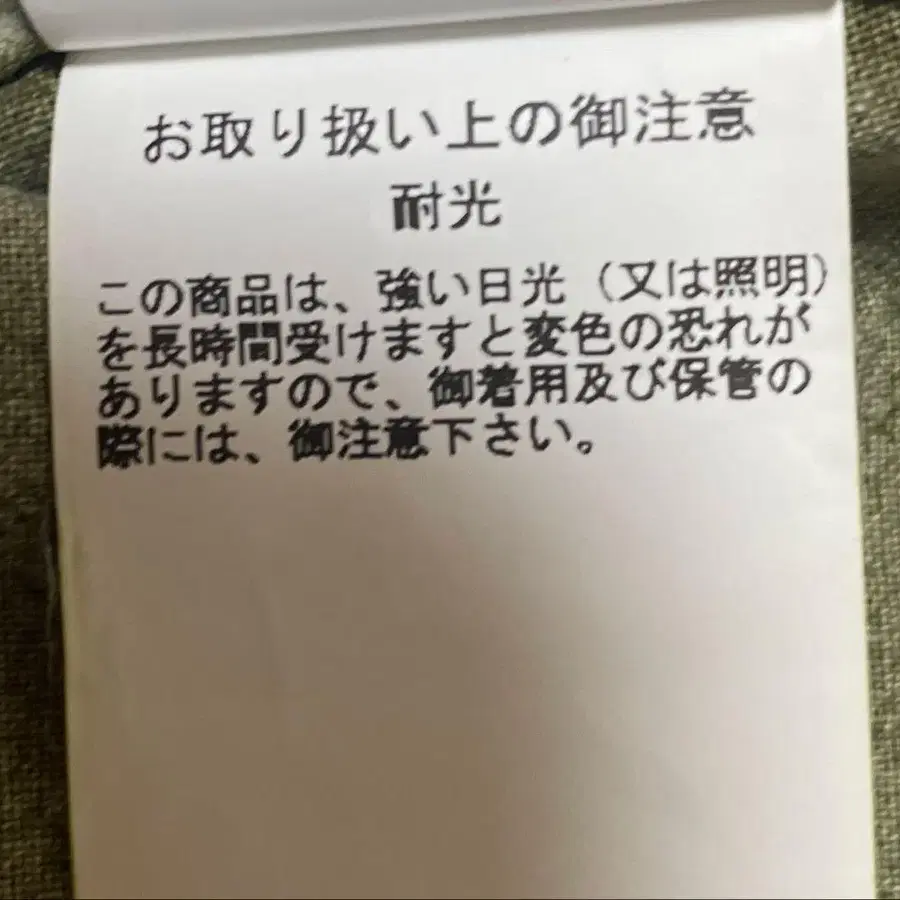 お取り扱い上の御注意
耐光
この商品は、強い日光（又は照明）
を長時間受けますと変色の恐れが
ありますので、御着用及び保管の
際には、御注意下さい。